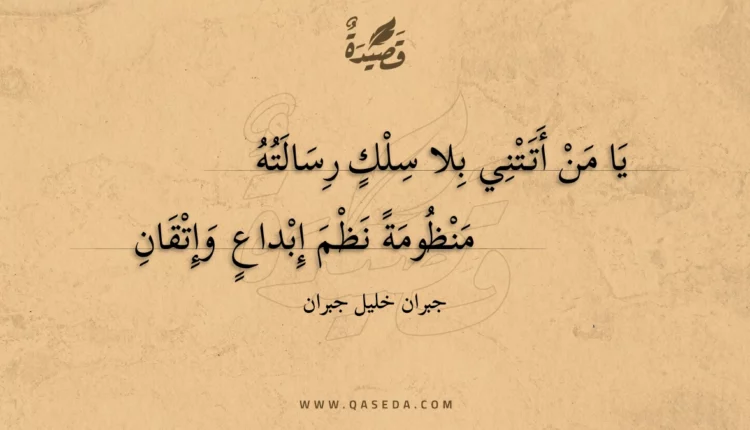 قَصِيدَةٌ
يَا مَنْ أَتَتْنِي بِلا سِلْكٍ رِسَالَتُهُ
مَنْظُومَةً نَظْمَ إِبْداعٍ وَإِتْقَانِ
جبران خليل جبران
WWW.QASEDA.COM